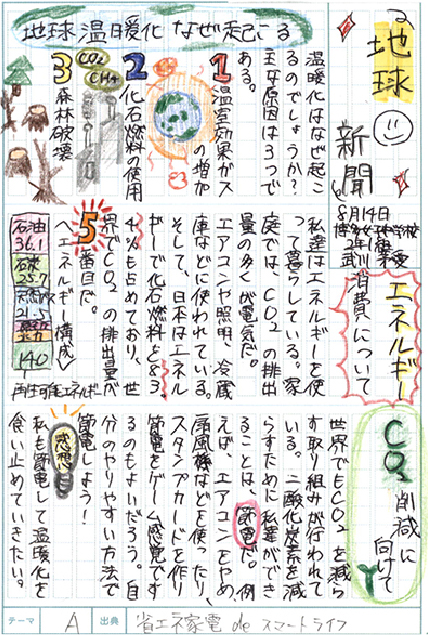 地球
新聞
8月14日
地球温暖化なぜ起こる
温暖化はなぜ起こ
るのでしょうか？
主な原因は3つで
ある。
1
温室効果ガス
の増加
2
化石燃料の使用
CO₂
CH₄
3
森林破壊
エネルギー
消費について
私達はエネルギーを使
って暮らしている。家
庭では、CO2の排出
量の多くが電気だ。
エアコンや照明、冷蔵
庫などに使われている。
そして、日本はエネル
ギーで化石燃料と83.
4%も占めており、世
界でCO2の排出量が
5番目だ。
〈エネルギー構成〉
石油
36.1
石炭
25.7
21.5
14.0
再生可能エネルギー
CO2削減に
向けて
世界でもCO2を減ら
す取り組みが行われて
いる。二酸化炭素を減
らすために私達ができ
ることは、節電だ。例
えば、エアコンをやめ、
扇風機などを使ったり、
スタンプカードを作り
節電をゲーム感覚です
るのもよいだろう。自
分のやりやすい方法で
節電しよう！
感想
私も節電して温暖化を
食い止めていきたい。
テーマ
A
出典
省エネ家電 de スマートライフ